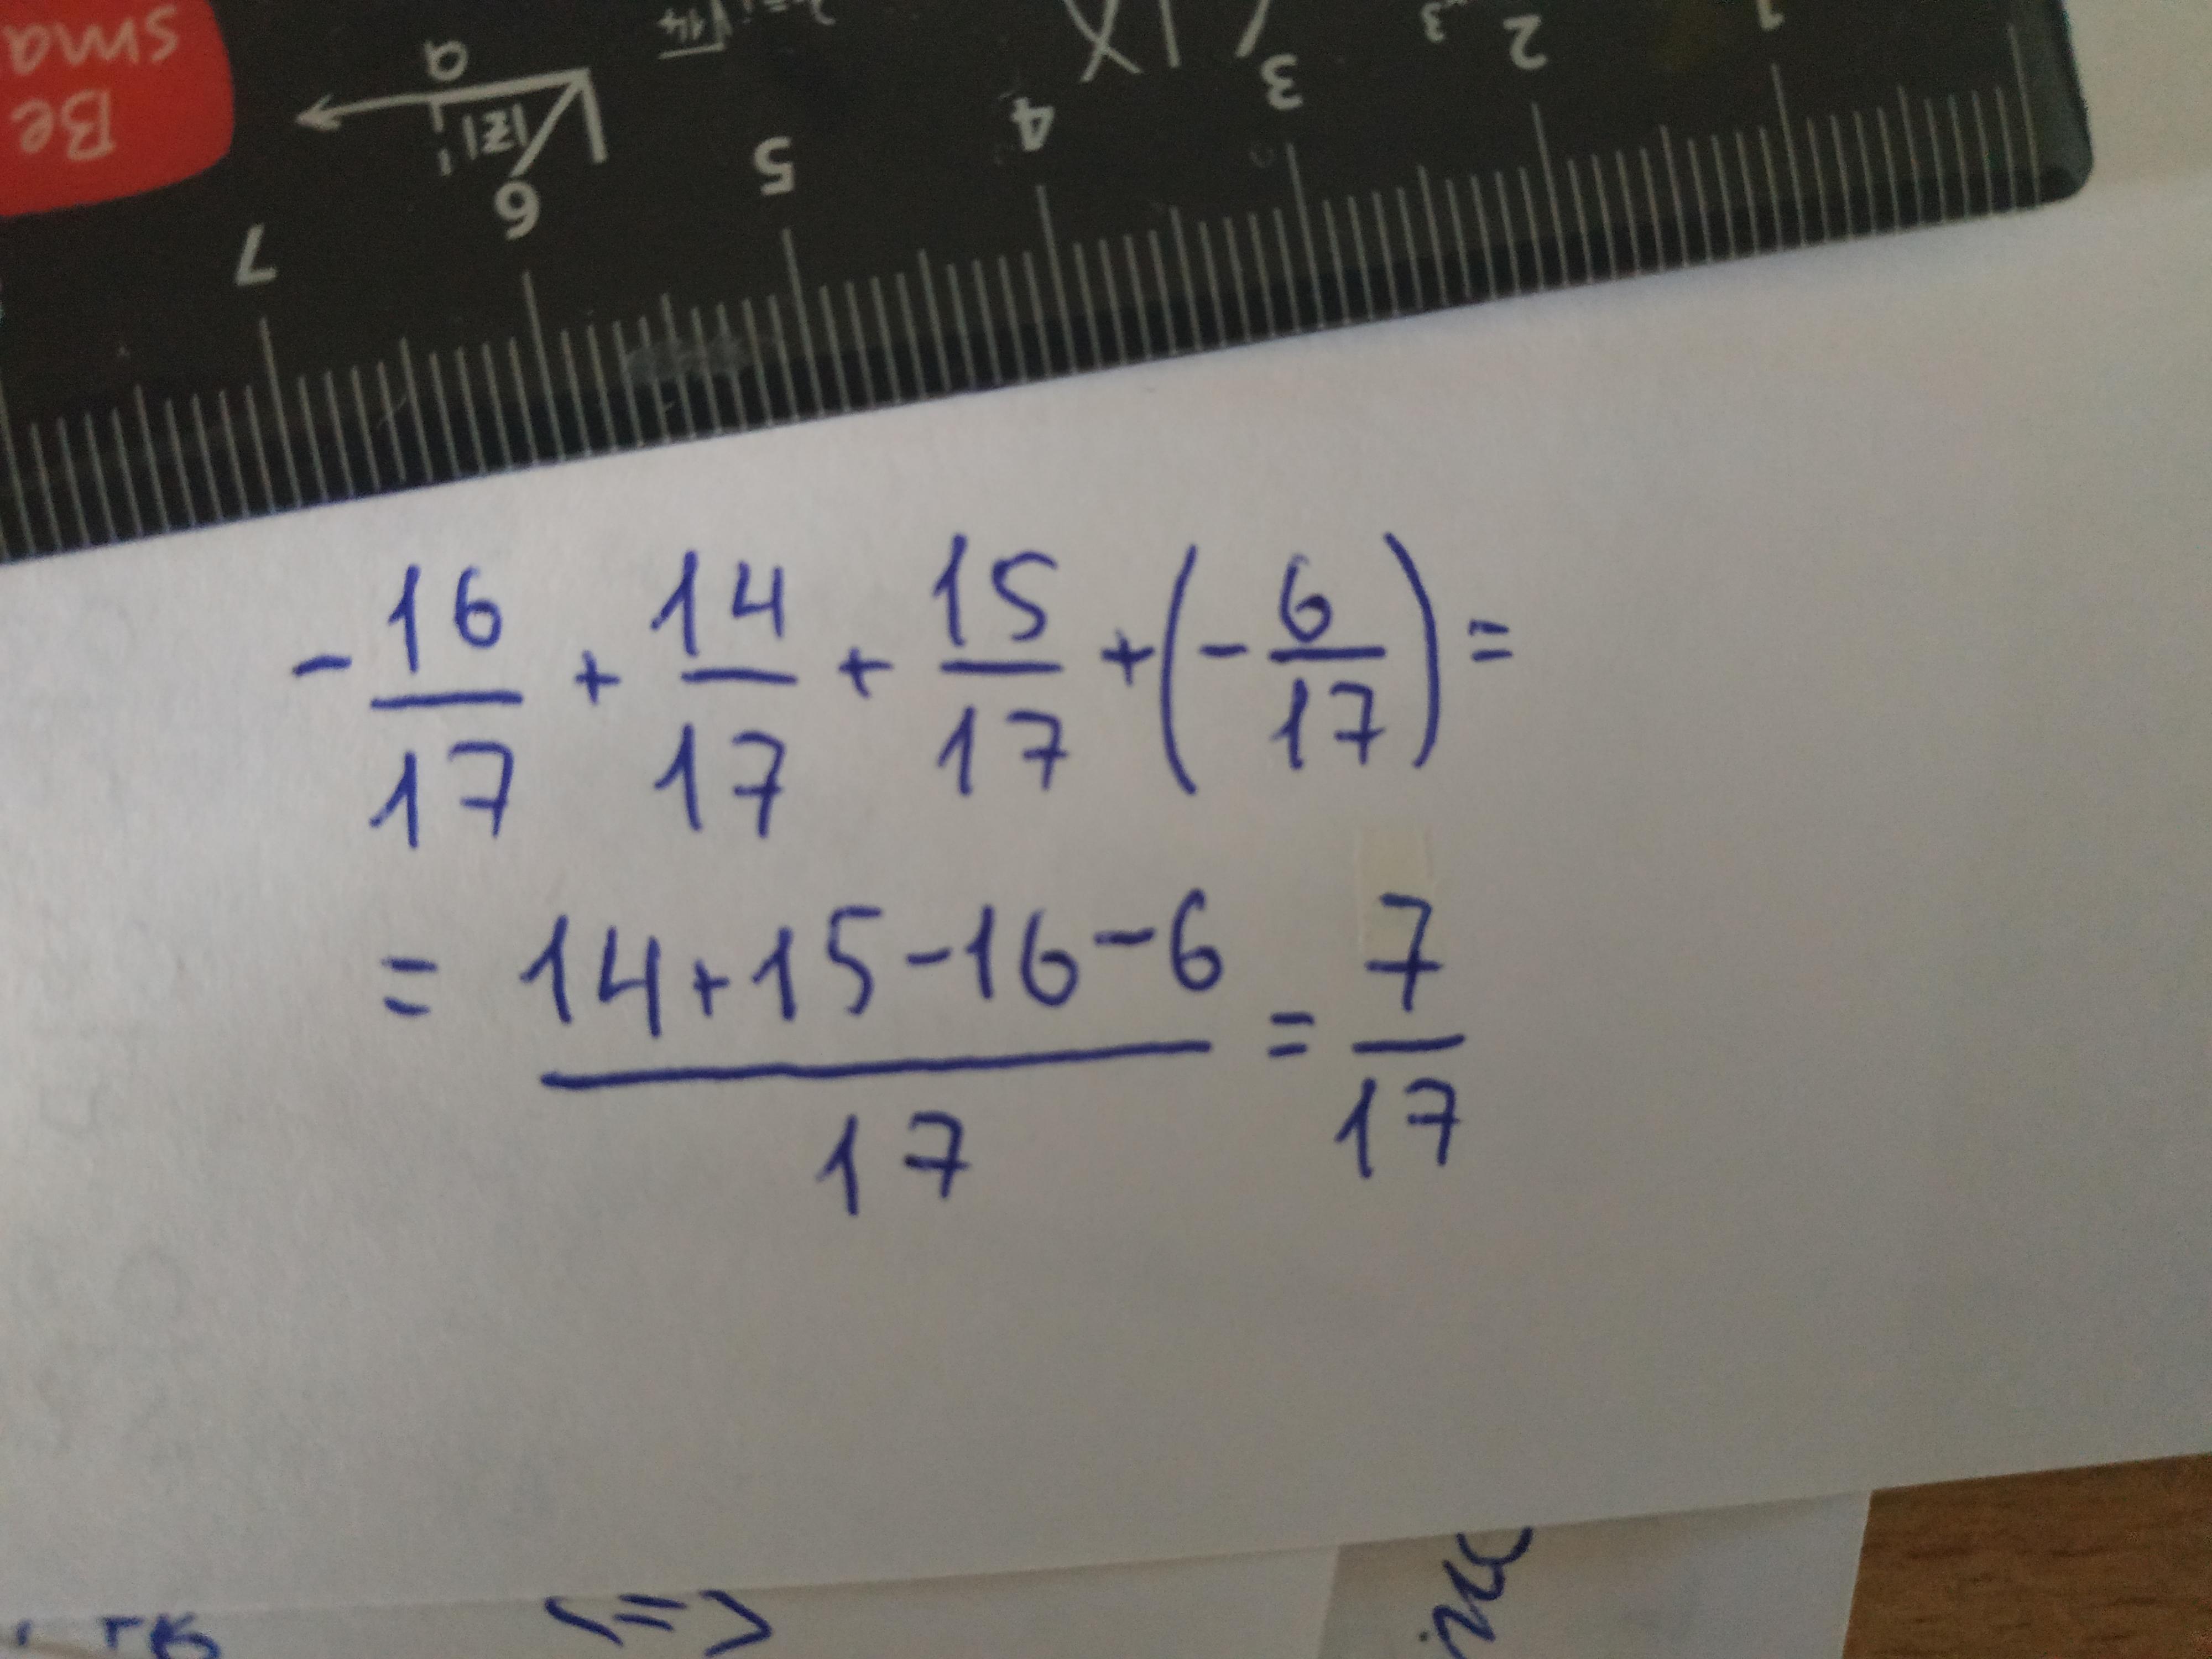 Be
sma
a
|z|
1 2 3 4 5 6 7
-16/17 + 14/17 + 15/17 + (-6/17) =
= (14+15-16-6)/17 = 7/17
<=>